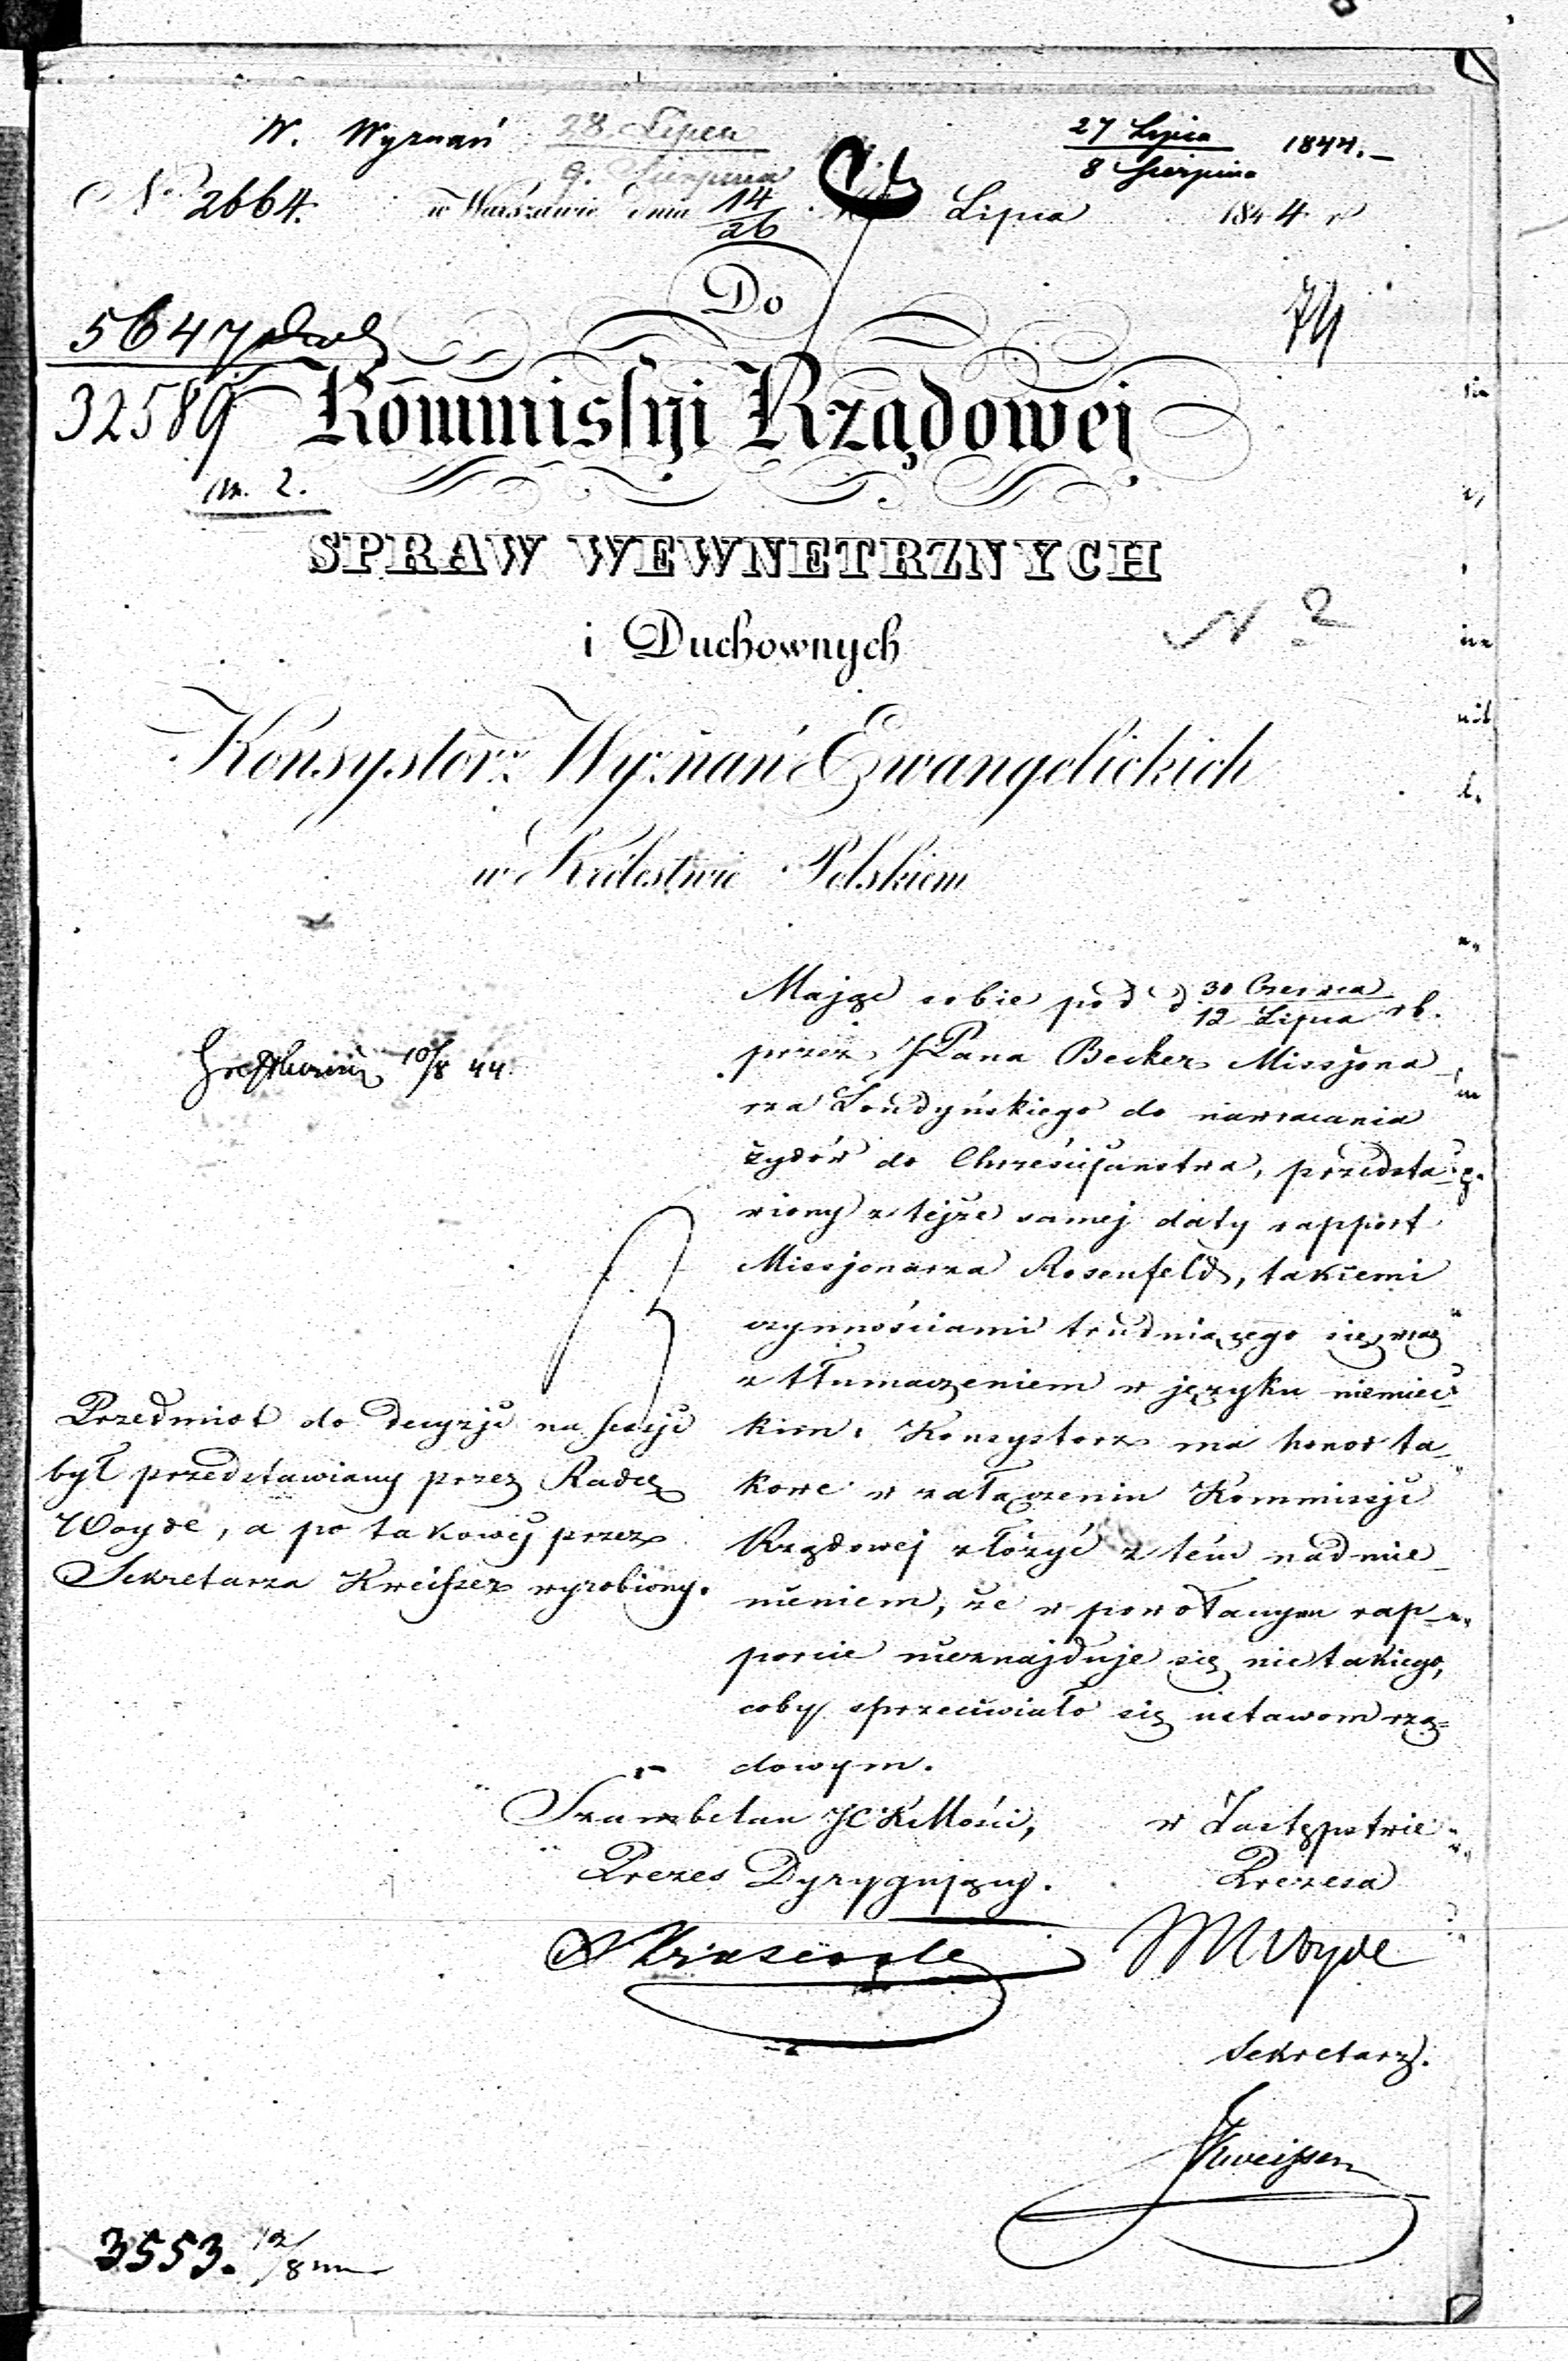 W. Wyznań 28 Lipca 27 Lipca 1844.
9. Sierpnia 8 Sierpnia
No 2664. w Warszawie dnia 14/26 Lipca 1844 r
Do
74
5647
32589 Kommissyi Rządowej
m. 2.
SPRAW WEWNETRZNYCH
i Duchownych
N 2
Konsystorz Wyznań Ewangelickich
w Królestwie Polskiem
Mając sobie pod d 30 Czerwca / 12 Lipca rb.
przez JPana Becker Missjona-
rza Londyńskiego do nawracania
żydów do Chrześcijaństwa, przedsta-
wiony z tejże samej daty rapport
Missjonarza Rosenfeld, takiemi
czynnościami trudniącego się wraz
z tłumaczeniem w języku niemiec-
kim. Konsystorz ma honor ta-
kowe w załączeniu Kommissji
Rządowej złożyć z tém nadmie-
nieniem, że w powołanym rap-
porcie nieznajduje się nic takiego,
coby sprzeciwiało się ustawom rzą-
dowym.
10/8 44.
Przedmiot do decyzji na sessji
był przedstawiany przez Radcę
Woyde, a po takowéj przez
Sekretarza Kweisser wyrobiony.
Szambelan JCKMości,
Prezes Dyrygujący.
w Zastępstwie
Prezesa
MWoyde
Sekretarz.
Kweisser
3553. 12/8